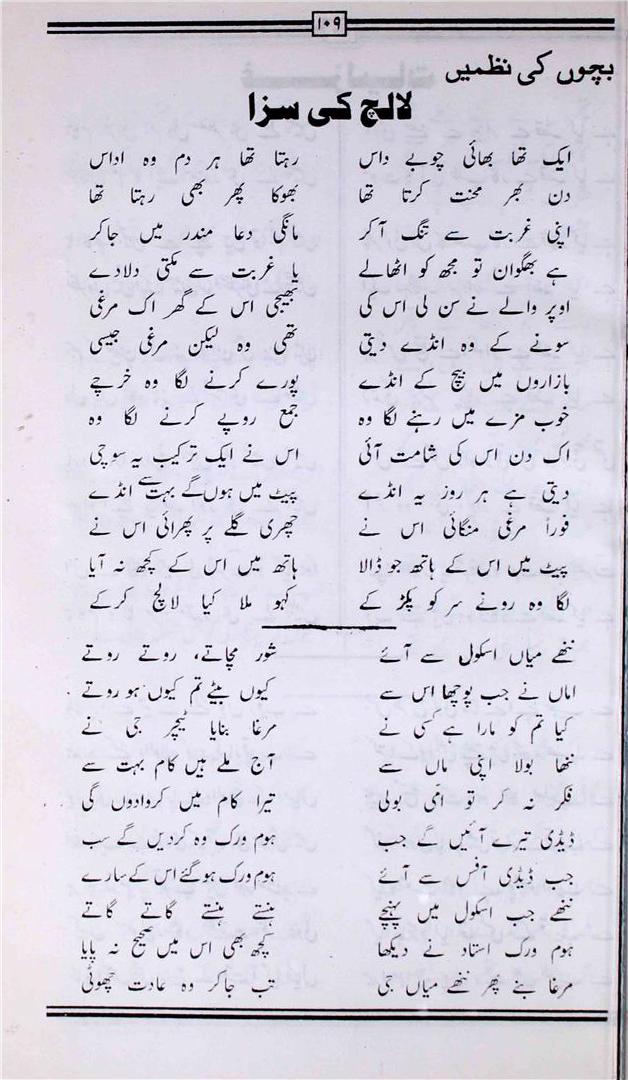 ۱۰۹
بچوں کی نظمیں
لالچ کی سزا
ایک تھا بھائی چوبے داس رہتا تھا ہر دم وہ اداس
دن بھر محنت کرتا تھا بھوکا پھر بھی رہتا تھا
اپنی غربت سے تنگ آکر مانگی دعا مندر میں جاکر
ہے بھگوان تو مجھ کو اٹھالے یا غربت سے مکتی دلادے
اوپر والے نے سن لی اس کی بھیجی اس کے گھر اک مرغی
سونے کے وہ انڈے دیتی تھی وہ لیکن مرغی جیسی
بازاروں میں بیچ کے انڈے پورے کرنے لگا وہ خرچے
خوب مزے میں رہنے لگا وہ جمع روپے کرنے لگا وہ
اک دن اس کی شامت آئی اس نے ایک ترکیب یہ سوچی
دیتی ہے ہر روز یہ انڈے پیٹ میں ہوں گے بہت سے انڈے
فوراً مرغی منگائی اس نے چھری گلے پر پھرائی اس نے
پیٹ میں اس کے ہاتھ جو ڈالا ہاتھ میں اس کے کچھ نہ آیا
لگا وہ رونے سر کو پکڑ کے کہو ملا کیا لالچ کرکے
ننھے میاں اسکول سے آئے شور مچاتے، روتے روتے
اماں نے جب پوچھا اس سے کیوں بیٹے تم کیوں ہو روتے
کیا تم کو مارا ہے کسی نے مرغا بنایا ٹیچر جی نے
ننھا بولا اپنی ماں سے آج ملے ہیں کام بہت سے
فکر نہ کر تو امی بولی تیرا کام میں کروادوں گی
ڈیڈی تیرے آئیں گے جب ہوم ورک وہ کردیں گے سب
جب ڈیڈی آفس سے آئے ہوم ورک ہوگئے اس کے سارے
ننھے جب اسکول میں پہنچے ہنستے ہنستے گاتے گاتے
ہوم ورک استاد نے دیکھا کچھ بھی اس میں صحیح نہ پایا
مرغا بنے پھر ننھے میاں جی تب جاکر وہ عادت چھوٹی